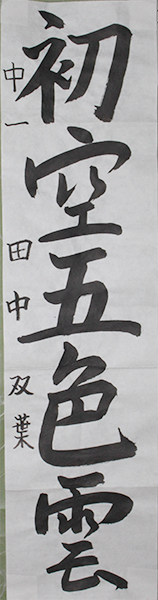 初空五色雲
中一 田中 双葉